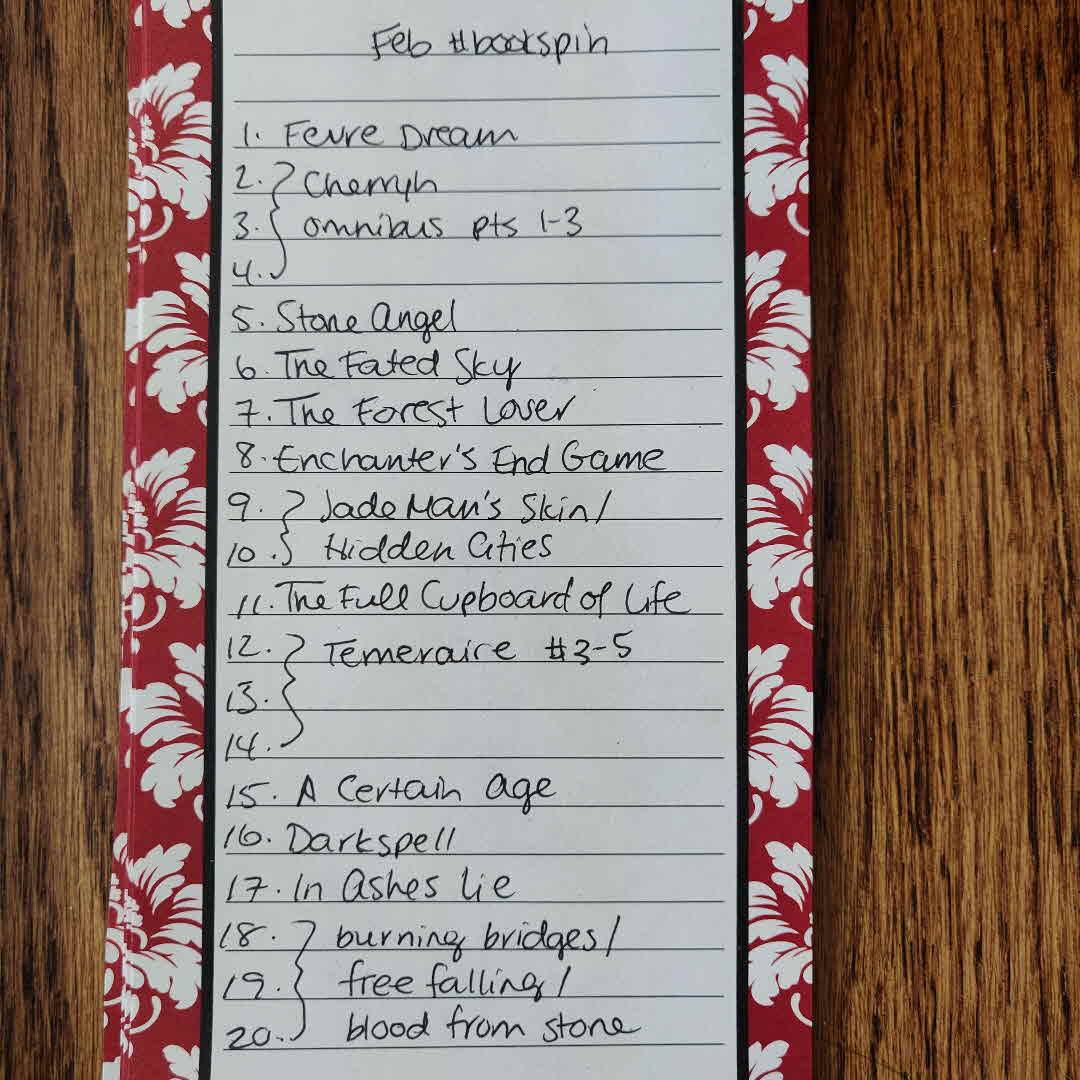 Feb #bookspin
1. Fevre Dream
2. Cherryh
3. omnibus pts 1-3
4.
5. Stone Angel
6. The Fated Sky
7. The Forest Lover
8. Enchanter's End Game
9. Jade Man's Skin/
10. Hidden Cities
11. The Full Cupboard of Life
12. Temeraire #3-5
13.
14.
15. A Certain Age
16. Darkspell
17. In Ashes Lie
18. burning bridges/
19. free falling/
20. blood from stone